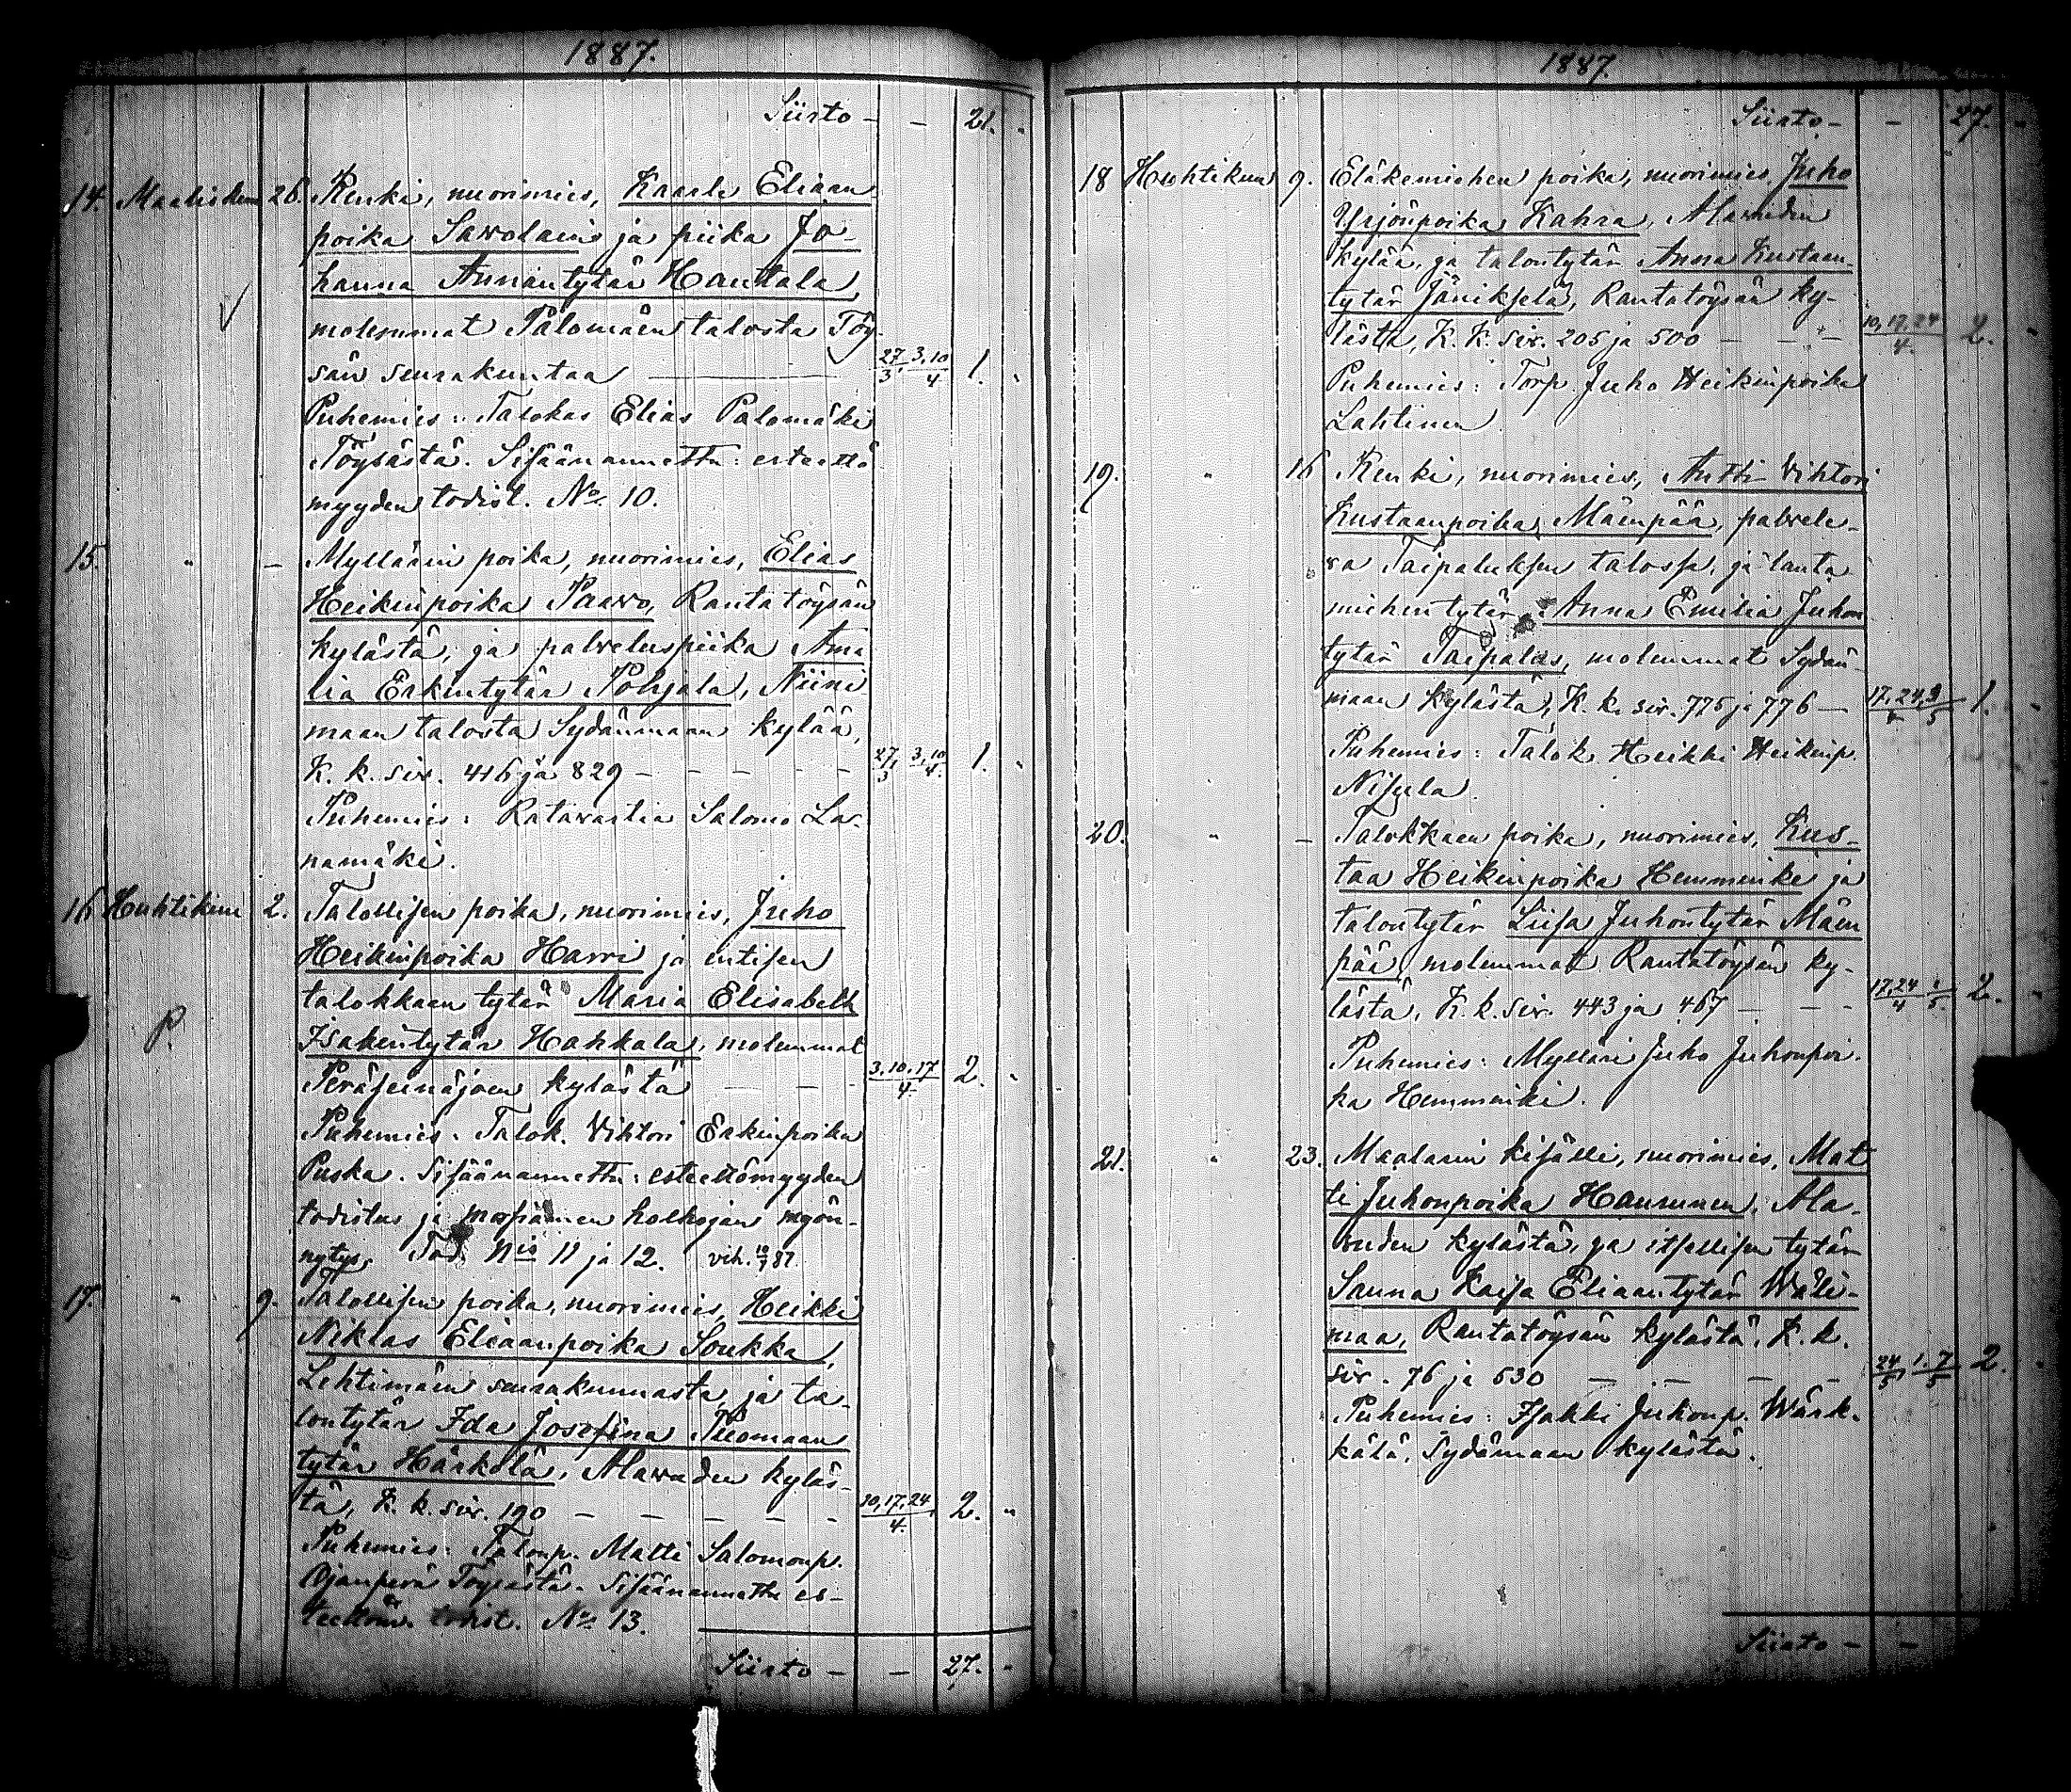 1887.
Siirto - - 21. "
14. Maaliskuu 26. Renki, nuorimies, Kaarle Eliaan-
poika Sawolaine ja piika Jo-
hanna Annantytär Hautala,
molemmat Palomäen talosta Töy-
sän seurakuntaa — 27/3, 3.10/4 1. "
Puhemies: Talokas Elias Palomäki
Töysästä. Sisäänannettu: esteettö
myyden todist. No 10.
15. " - Myllärin poika, nuorimies, Elias
Heikinpoika Paawo, Rantatöysän
kylästä, ja palveluspiika Ama
lia Erkintytär Pohjala, Niini
maan talosta Sydänmaan kylää,
K. k. siv. 416 ja 829 - - - - - 27/3, 3,10/4. 1. "
Puhemies: Ratavartia Salomo La-
namäki.
16. Huhtikuu 2. Talollisen poika, nuorimies, Juho
Heikinpoika Harri ja entisen
talokkaan tytär Maria Elisabeth
Isakintytär Hahkala, molemmat
P.
Peräseinäjoen kylästä - - - 3.10.17/4. 2. "
Puhemies: Talok. Vihtori Erkinpoika
Puska. Sisäänannettu: esteettömyyden
todistus ja morsiamen holhojan myön-
nytys. Tod. Nis 11 ja 12. vih. 10/7 87.
17. " 9. Talollisen poika, nuorimies, Heikki
Niklas Eliaanpoika Soukka,
Lehtimäen seurakunnasta, ja ta-
lontytär Ida Josefina Tuomaan
tytär Härkölä, Alawuden kyläs-
tä, K. k. siv. 190 - - - - - 10,17,24/4. 2. "
Puhemies: Talonp. Matti Salomonp.
Ojanperä Töysästä. Sisäänannettu es-
teettöm. todist. No 13.
Siirto - - 27. "
1887.
Siirto - - 27. "
18 Huhtikuu 9. Eläkemiehen poika, nuorimies, Juho
Yrjönpoika Kahra, Alawuden
kylää, ja talontytär Anna Kustaan-
tytär Jänikselä, Rantatöysän ky-
lästä, K. K. siv. 205 ja 500 - - - 10,17,24/4. 2. "
Puhemies: Torp. Juho Heikinpoika
Lahtinen
19. " 16 Renki, nuorimies, Antti Vihtori
Kustaanpoika Mäenpää, palvele-
va Taipaluksen talossa, ja lauta
miehen tytär Anna Emilia Juhon
tytär Taipalus, molemmat Sydän-
maan kylästä, K. k. siv. 775 ja 776 - 17,24/4, 1. "
Puhemies: Talok. Heikki Heikinp.
Nisula.
20. " - Talokkaen poika, nuorimies, Kus-
taa Heikinpoika Hemminki ja
talontytär Liisa Juhontytär Mäen
pää, molemmat Rantatöysän ky-
lästä, K. k. siv. 443 ja 467 - - - 17,24/4 1/5. 2. "
Puhemies: Mylläri Juho Juhonpoi-
ka Hemminki.
21. " 23. Maalarin kisälli, nuorimies, Mat
ti Juhonpoika Haununen, Ala-
wuden kylästä, ja itsellisen tytär
Sanna Kaisa Eliaantytär Wäli-
maa, Rantatöysän kylästä, K. k.
siv. 76 ja 630 - - - - 24/5, 1.7/5 2. "
Puhemies: Isakki Juhonp. Wärk-
kälä, Sydämaan kylästä.
Siirto - -